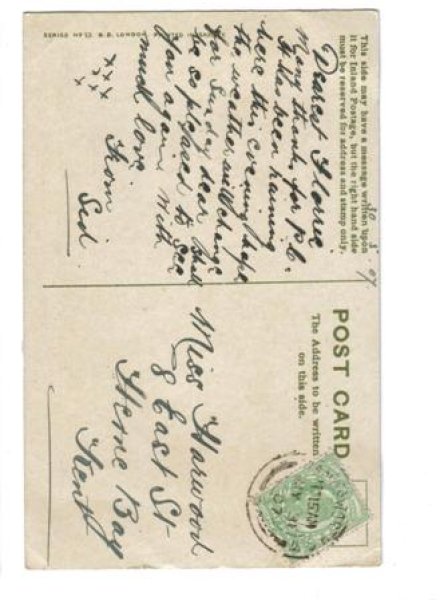 This side may have a message written upon
it for Inland Postage, but the right hand side
must be reserved for address and stamp only.
30 . 5 . 07
Dearest Florrie
Many thanks for p.c.
It has been raining
here this evening hope
the weather will change
for Sunday dear shall
be so pleased to see
you again with
much love
From
Sid
x x x x
LONDON. E.C. CLAN SERIES
POST CARD
The Address to be written
on this side.
Miss Harwood
8 East St
Herne Bay
Kent